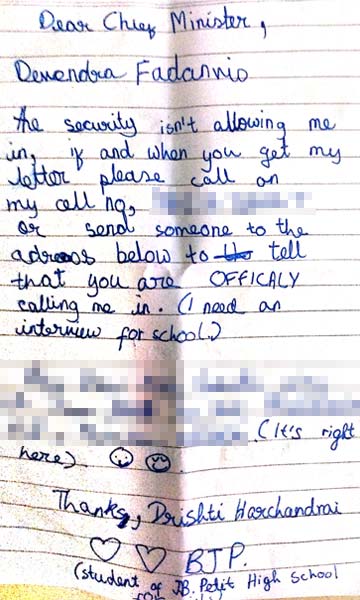 Dear Chief Minister,
Devendra Fadanvio
the security isn't allowing me
in, if and when you get my
letter please call on
my cell no,
or send someone to the
adress below to tell
that you are OFFICALY
calling me in. (I need an
interview for school.)
(It's right
here)
Thanks, Drishti Harchandrai
BJP.
(student of JB. Petit High School